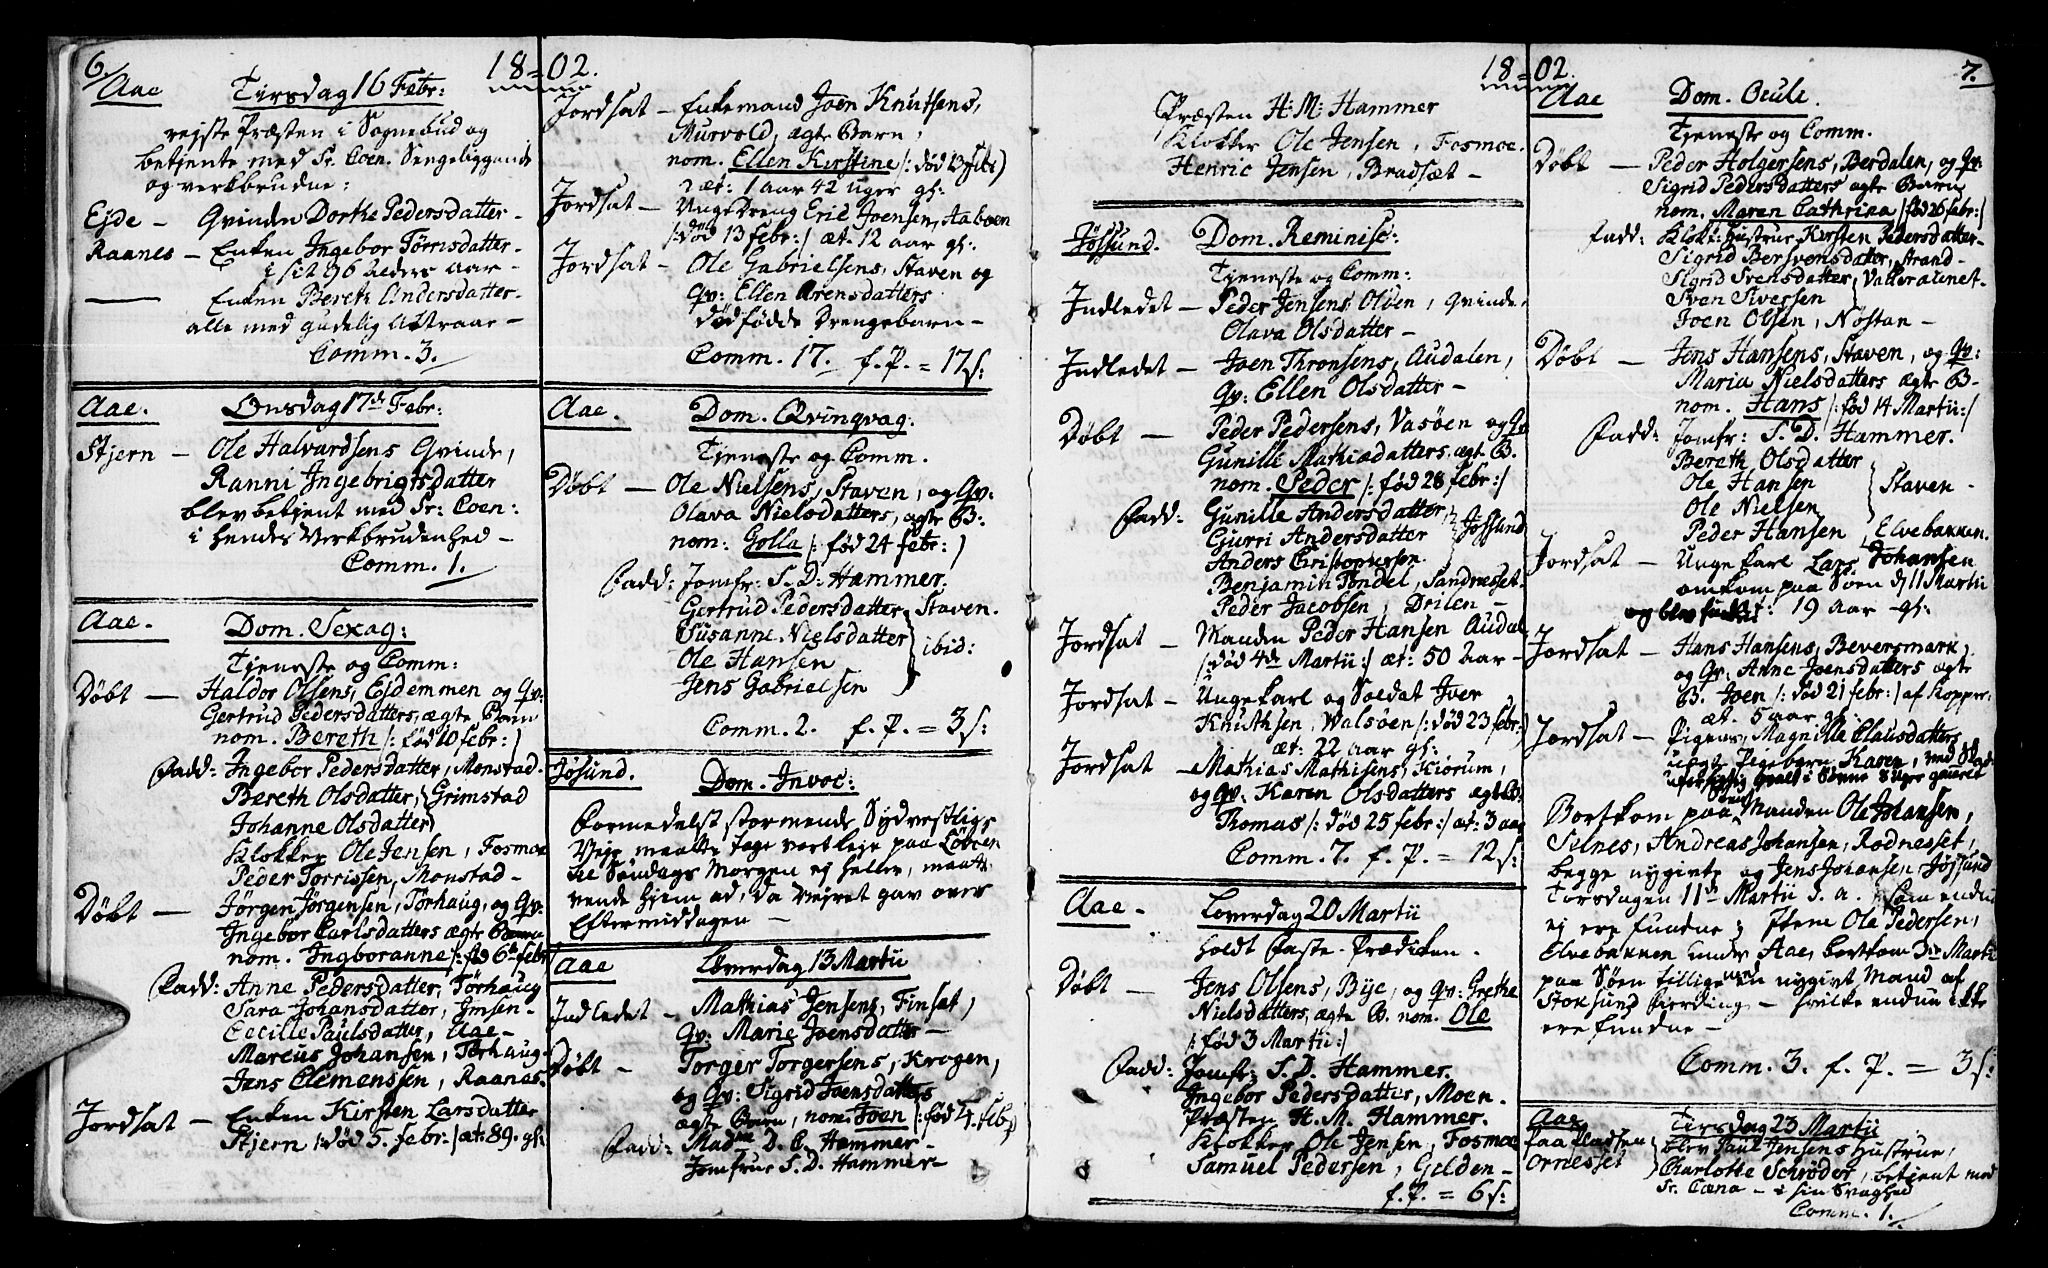 6.
18=02.
Aae Tirsdag 16 Febr:
rejste Præsten i Sognebud og
betjente med Sr. Coen. Sengeliggende
og verkbrudne:
Ejde – Qvinden Dorthe Pedersdatter –
Raanes – Enken Ingebor Törrisdatter –
i sit 96 Leders Aar –
Enken Bereth Andersdatter –
alle med gudelig Attraar –
Comm. 3.
Aae. Onsdag 17de Febr:
Stjern – Ole Halvardsens Qvinde,
Ranni Ingebrigtsdatter
blev betjent med Sr: Coen:
i hendes Verkbrudenhed –
Comm. 1.
Aae. Dom. Sexag:
Tjeneste og Comm:
Döbt – Haldor Olsens, Ejdemmen og Qv:
Gertrud Pedersdatters, ægte Barn
nom. Bereth /: fød 10 febr: /
Fadd: Ingebor Pedersdatter, Monstad.
Bereth Olsdatter, Grimstad
Johanne Olsdatter
Klokker Ole Jensen, Fosmoe
Peder Torrissen, Monstad –
Döbt – Jörgen Jörgensen, Törhaug, og Qv:
Ingebor Carlsdatters ægte Barn
nom. Ingboranne /: fød 6te febr
Fadd: Anne Pedersdatter, Törhaug
Sara Johansdatter, Imsen –
Cecille Paulsdatter, Aae –
Marcus Johansen, Törhaug –
Jens Clemenssen, Raanes.
Jordsat – Enken Kirsten Larsdatter
Stjern /: død 5. febr: / æt: 89. gl:
Jordsat – Enkemand Joen Knutsens,
Murvold, ægte Barn,
nom. Ellen Kirstine /: død 13 febr /
æt: 1 aar 42 uger gl:
Jordsat – Unge Dreng Eric Joensen, Aaboen
/: død 13 febr: / æt. 12 aar gl:
Jordsat – Ole Gabrielsens, Staven og
Qv: Ellen Arensdatters
dödfödde Drengebarn –
Comm. 17. f. P. = 17 s:
Aae. Dom. Qvinqvag:
Tjeneste og Comm.
Döbt – Ole Nielsens, Staven, og Qv:
Olava Nielsdatters, ægte B:
nom: Golla /: fød 24 febr: /
Fadd: Jomfr: S. D: Hammer.
Gertrud Pedersdatter Staven.
Susanne Nielsdatter
Ole Hansen ibid:
Jens Gabrielsen
Comm. 2. f. P. = 3 s:
Jösund. Dom. Invoc:
Formedelst stormende Sydvestlige
Vejr maatte tage verbleje paa Löböen
til Söndags Morgen ej heller, maatte
vende hjem ad, da vejret gav over
Eftermiddagen –
Aae Löverdag 13 Martii
Indledet – Mathias Jensens, Finset,
Qv: Marie Joensdatter –
Döbt – Torger Torgersens, Krogen,
og Qv: Sigrid Joensdatters
ægte Barn, nom. Joen /: fød 4. febr /
Fadd: Madme D. C. Hammer –
Jomfrue S. D. Hammer –
18=02.
7.
Præsten H: M: Hammer
Klokker Ole Jensen, Fosmoe.
Henric Jensen, Bradsæt –
Jössund. Dom. Reminisc:
Tjeneste og Comm:
Indledet – Peder Jensens, Olden, Qvinde,
Olava Olsdatter –
Indledet – Joen Thronsens, Audalen,
Qv: Ellen Olsdatter –
Döbt – Peder Pedersens, Vasöen og Qv
Gunille Mathiædatters, ægt. B.
nom. Peder /: fød 28 febr: /
Fadd: Gunille Andersdatter, Jössund
Gjurri Andersdatter
Anders Christophersen
Benjamin Pondel, Sandnesset –
Peder Jacobsen, Drilen –
Jordsat – Manden Peder Hansen Audal
/: død 4de Martii: / æt: 50 Aar –
Jordsat – Ungekarl og Soldat Iver
Knuthsen, Walsöen /: død 23 febr: /
æt: 22 aar gl:
Jordsat – Mathias Mathisens, Kiorum,
og Qv: Karen Olsdatters ægte B:
Thomas /: død 25 febr: / æt: 3 aar
Comm. 7. f. P. = 12 s:
Aae. Löverdag 20 Martii
holdt Faste-Prædiken.
Döbt – Jens Olsens, Bije, og Qv: Grethe
Nielsdatters, ægte B. nom. Ole
/: fød 3 Martii: /
Fadd: Jomfr: S. D. Hammer.
Ingebor Pedersdatter, Moen.
Præsten H. M. Hammer.
Klokker Ole Jensen, Fosmoe
Samuel Pedersen, Gielden –
f. P. = 6 s:
Aae Dom. Oculi.
Tjeneste og Comm.
Döbt – Peder Holgersens, Berdalen, og Qv:
Sigrid Pedersdatters ægte Barn
nom. Maren Cathrina /: fød 26 febr: /
Fadd: Klok: Hustrue Kirsten Pedersdatter –
Sigrid Bersvensdatter, Strand –
Sigrid Svensdatter,
Sven Siversen
Joen Olsen, Nostan –
Döbt – Jens Hansens, Staven, og Qv:
Maria Nielsdatters ægte B –
nom. Hans /: fød 14 Martii: /
Fadd: Jomfr: S. D. Hammer.
Bereth Olsdatter
Ole Hansen Staven –
Ole Nielsen
Peder Hansen, Elvebakken.
Jordsat – Unge karl Lars Johansen
omkom paa Söen d 11 Martii
og blev funden: 19 aar gl:
Jordsat – Hans Hansens, Beversmark
og Qv: Anne Joensdatters ægte
B. Joen /: død 21 febr: / af Kopper:
æt. 5 aar gl:
Jordsat – Pigens, Magnille Clausdatters
uægte Pigebarn Karen,
8 uger gammel
Bortkom paa Söen Manden Ole Johansen,
Selnes, Andreas Johansen, Rodnesset,
begge nygivte og Jens Johansen, Jössund
Torsdagen 11te Martii d. a. som endnu
ej ere fundne; Item Ole Pedersen,
Elvebakken under Aae, bortkom 3die Martii
paa Söen tillige med en nygivt Mand af
Stoksund fierding – hvilke endnu ikke
ere fundne –
Comm. 3. f. P. = 3 s:
Aae Tirsdag 23 Martii
Paa Pladsen blev Paul Jensens Hustrue,
Ornesset Charlotte Schröder, betjent med
Sr. Coena – i sin Svaghed
Comm. 1.